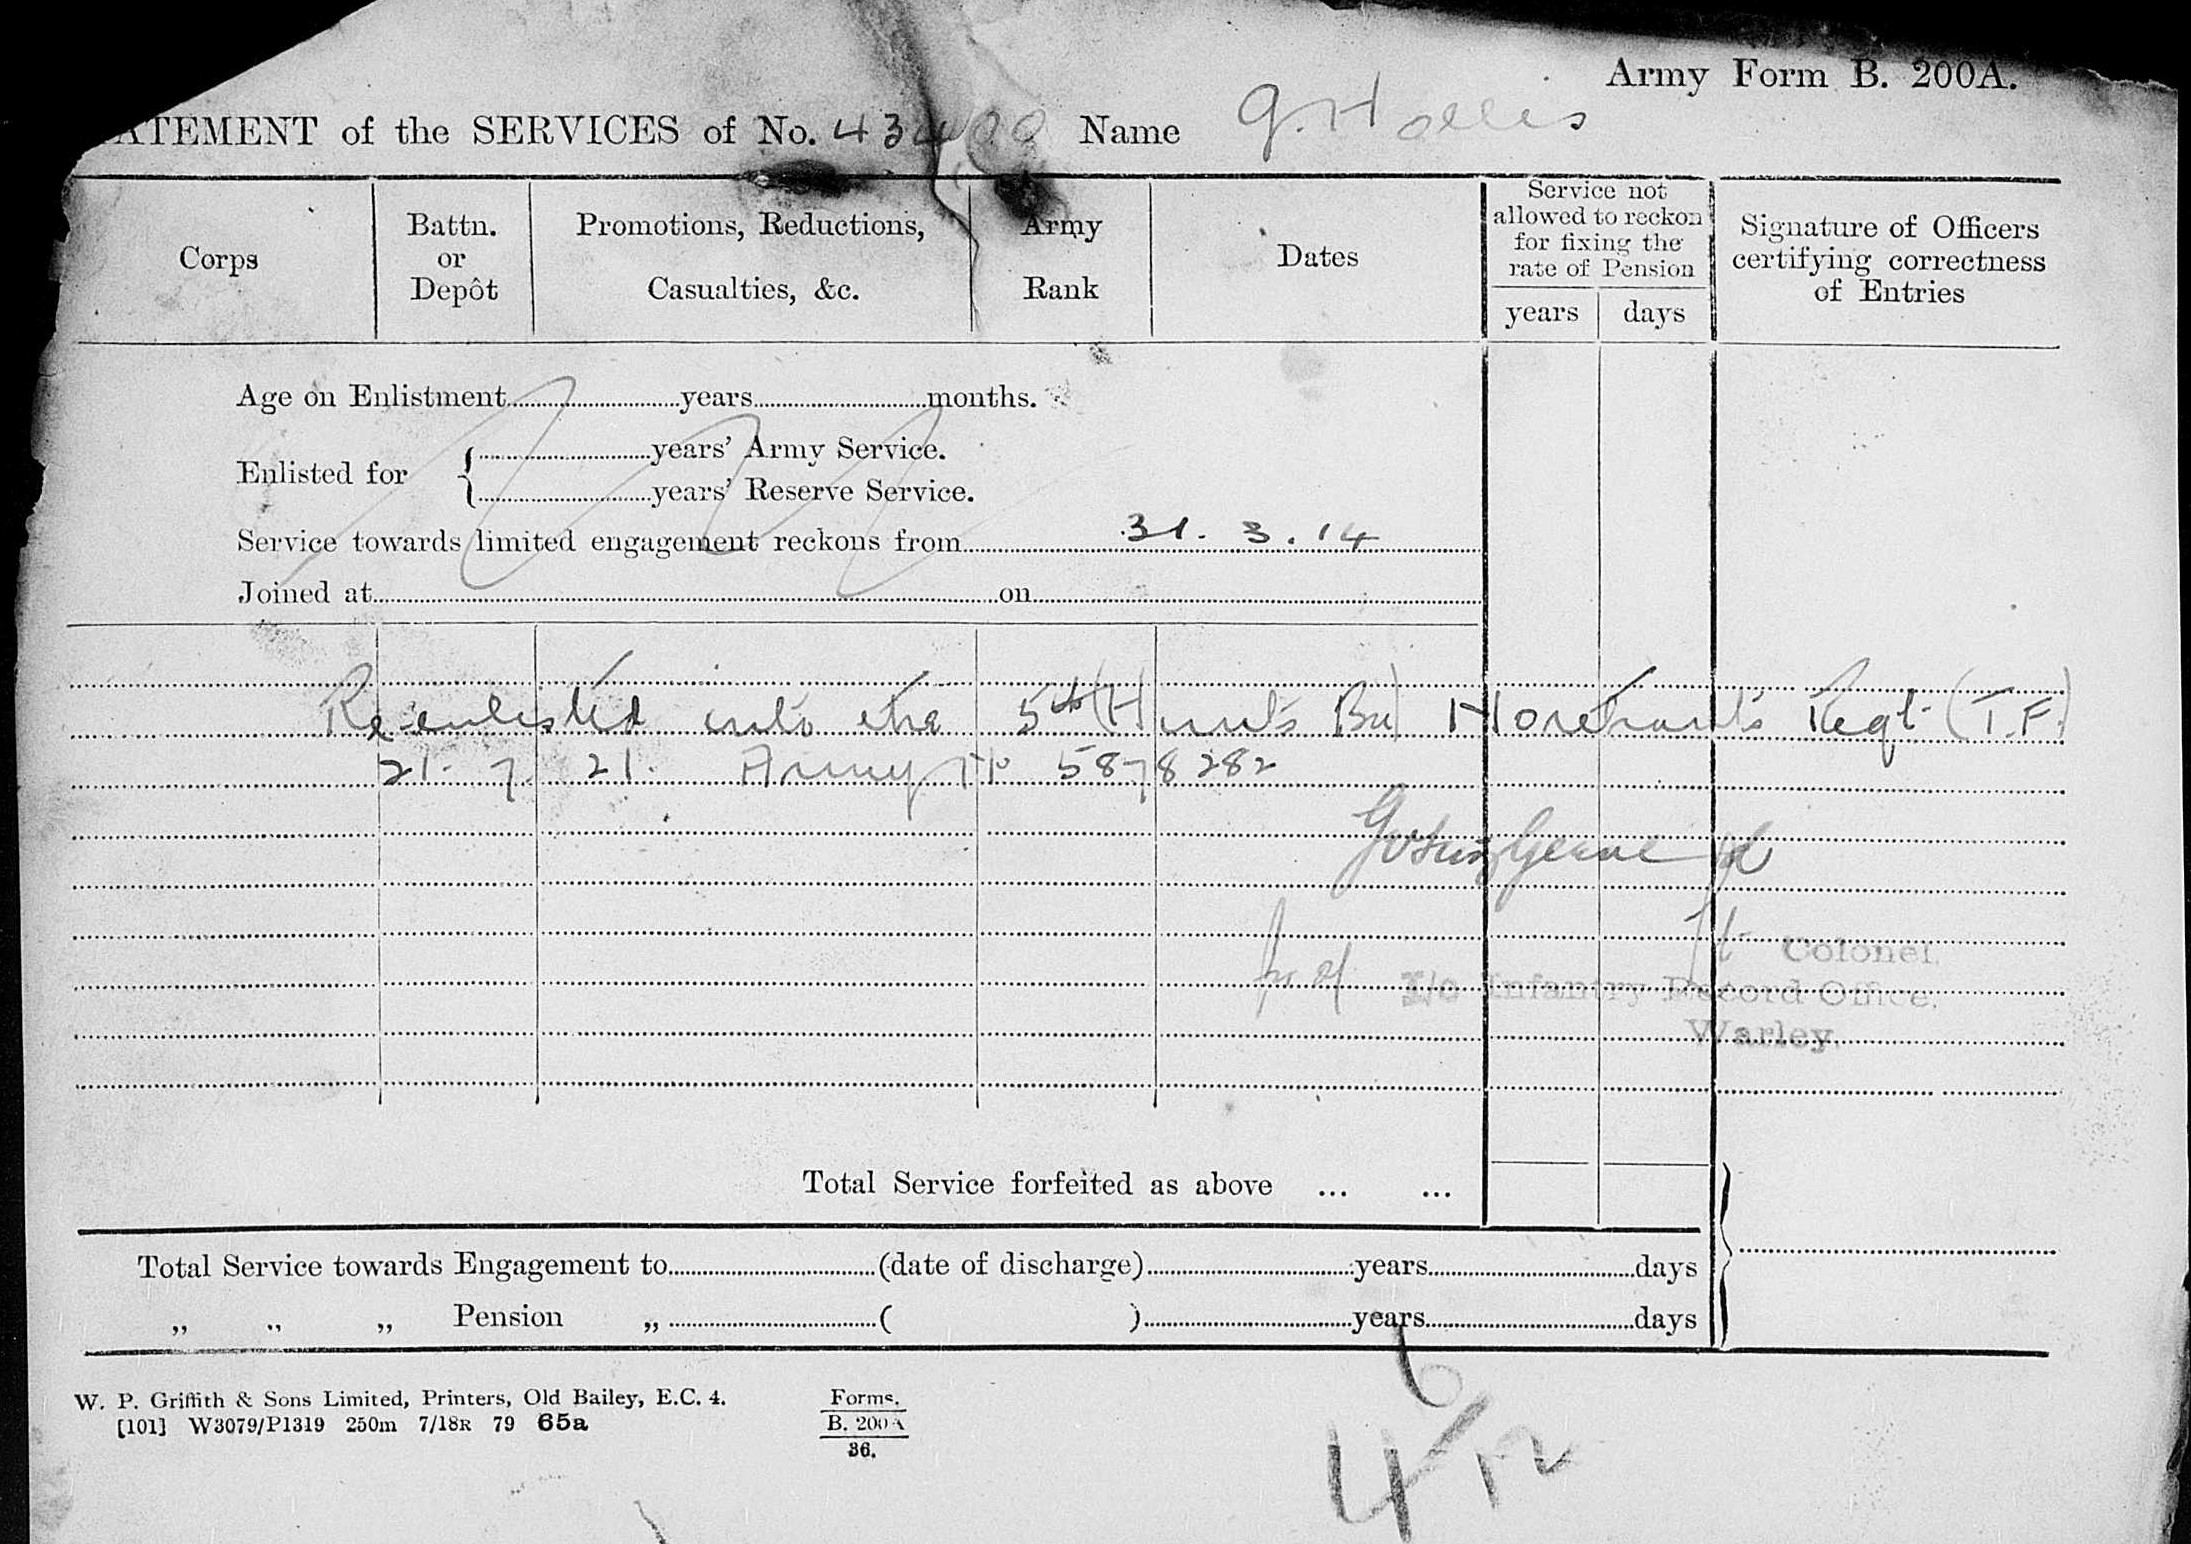 Army Form B. 200A.
ATEMENT of the SERVICES of No. 434 Name G. Hollis
Corps
Battn.
or
Depôt
Promotions, Reductions,
Casualties, &c.
Army
Rank
Dates
Service not
allowed to reckon
for fixing the
rate of Pension
years days
Signature of Officers
certifying correctness
of Entries
Age on Enlistment years months.
Enlisted for
years' Army Service.
years' Reserve Service.
Service towards limited engagement reckons from 31. 3. 14
Joined at on
Re-enlisted into the 5th (Hunts Bn) Northants Regt (T.F.)
21. 7. 21. Army No 5878282
for
Lt Colonel.
I/c Infantry Record Office.
Warley.
Total Service forfeited as above ... ...
Total Service towards Engagement to (date of discharge) years days
„ „ „ Pension „ ( ) years days
6
4/12
W. P. Griffith & Sons Limited, Printers, Old Bailey, E.C. 4.
[101] W3079/P1319 250m 7/18R 79 65a
Forms.
B. 200A
36.